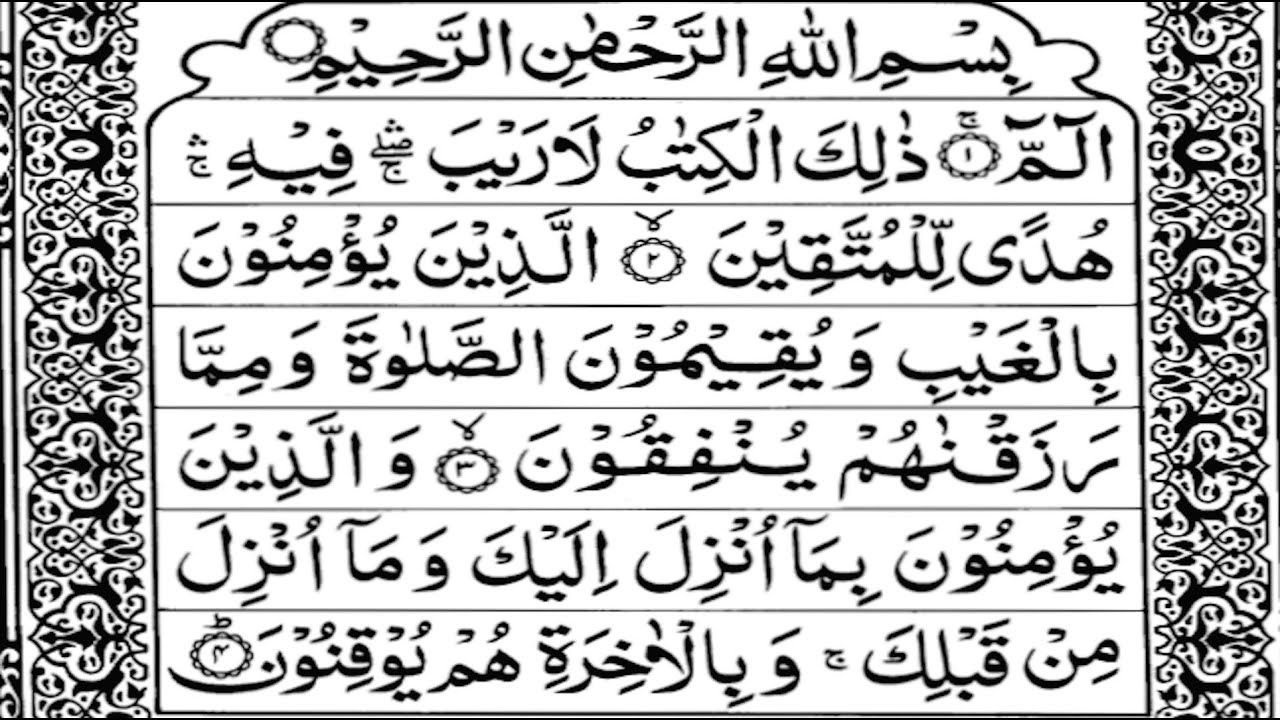 بِسْمِ اللّٰهِ الرَّحْمٰنِ الرَّحِيْمِ
الٓمّٓ ۚ﴿۱﴾ ذٰلِكَ الْكِتٰبُ لَا رَيْبَ ۛۖۚ فِيْهِ ۛۚ
هُدًى لِّلْمُتَّقِيْنَ ۙ﴿۲﴾ الَّذِيْنَ يُؤْمِنُوْنَ
بِالْغَيْبِ وَ يُقِيْمُوْنَ الصَّلٰوةَ وَ مِمَّا
رَزَقْنٰهُمْ يُنْفِقُوْنَ ۙ﴿۳﴾ وَ الَّذِيْنَ
يُؤْمِنُوْنَ بِمَاۤ اُنْزِلَ اِلَيْكَ وَ مَاۤ اُنْزِلَ
مِنْ قَبْلِكَ ۚ وَ بِالْاٰخِرَةِ هُمْ يُوْقِنُوْنَ ؕ﴿۴﴾